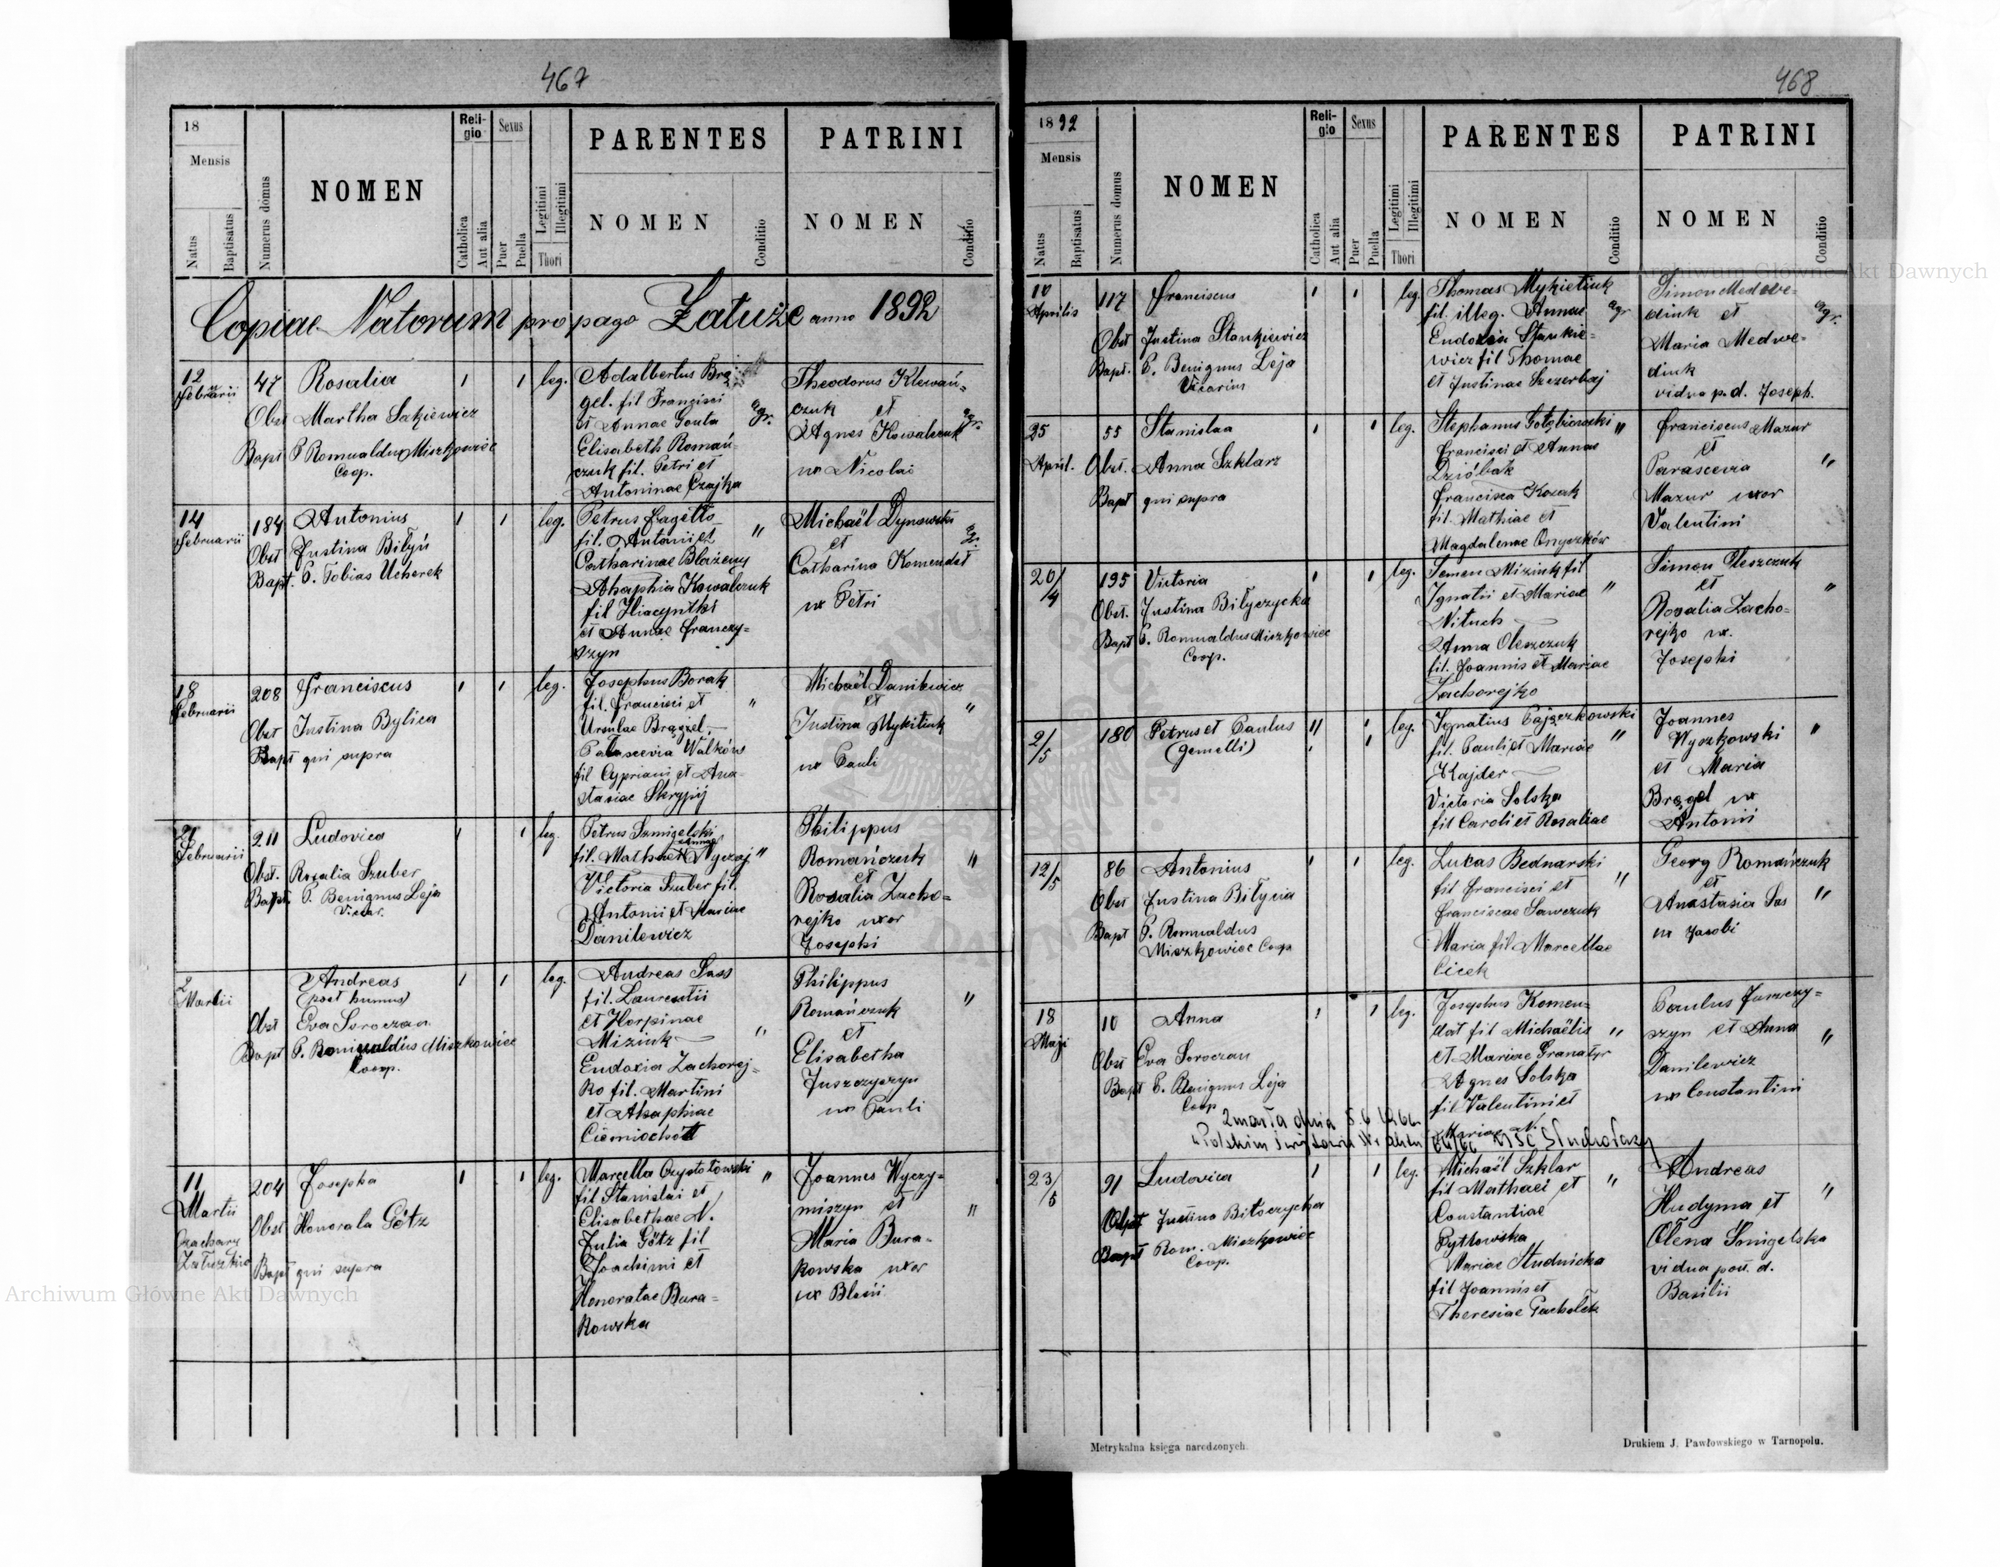 467
18
Mensis
Natus
Baptisatus
Numerus domus
NOMEN
Religio
Catholica
Aut alia
Sexus
Puer
Puella
Legitimi
Illegitimi
Thori
PARENTES
NOMEN
Conditio
PATRINI
NOMEN
Conditio
Copiae Natorum pro pago Załuże anno 1892
12 Februarii
47
Rosalia
Obst Martha Sakiewicz
Bapt P. Romualdus Miszkowiec
Coop.
leg.
Adalbertus
gel. fil Francisci
et Annae Gonta
Elisabeth Romań-
czuk fil. Petri et
Antoninae Czajka
agr.
Theodorus Klewań-
czuk et
Agnes Kowalczuk
ux Nicolai
agr.
14 Februarii
184
Antonius
Obst Justina Biłyń
Bapt. P. Tobias Ucherek
leg.
Petrus Bagetto
fil. Antonii et
Catharinae Błażeny
Ahaphia Kowalczuk
fil Hiacynthi
et Annae Franczy-
szyn
"
Michaël Dynowski
et
Catharina Komendat
ux Petri
agr.
18 Februarii
208
Franciscus
Obst Justina Bylica
Bapt qui supra
leg.
Josephus Borak
fil. Francisci et
Ursulae Brągiel
Parascevia Walków
fil Cypriani et Ana-
stasiae Skrypij
"
Michaël Danilewicz
et
Justina Mykitiuk
ux Pauli
"
Februarii
211
Ludovica
Obst. Rosalia Szuber
Bapt. P. Benignus Leja
Vicar.
leg.
Petrus Szmigelski
fil. Mathaei et Annae Nyczaj
Victoria Szuber fil.
Antonii et Mariae
Danilewicz
"
Philippus
Romańczuk
et
Rosalia Zacho-
rejko uxor
Josephi
"
2 Martii
Andreas
(post humus)
Obst Eva Soroczan
Bapt P. Romualdus Miszkowiec
Coop.
leg.
Andreas Sass
fil. Laurentii
et Horpinae
Miziuk
Eudoxia Zachorej-
ko fil. Martini
et Ahaphiae
"
Philippus
Romańczuk
et
Elisabetha
Juszczyszyn
ux Pauli
"
11
Martii
204
Josepha
Obst Honorata Götz
Bapt qui supra
leg.
Marcella Czystotowski
fil Stanislai et
Elisabethae N.
Julia Götz fil
Joachimi et
Honoratae Bura-
kowska
"
Joannes Wyczy-
miszyn et
Maria Bura-
kowska uxor
ux Blasii
"
468
1892
Mensis
Natus
Baptisatus
Numerus domus
NOMEN
Religio
Catholica
Aut alia
Sexus
Puer
Puella
Legitimi
Illegitimi
Thori
PARENTES
NOMEN
Conditio
PATRINI
NOMEN
Conditio
10 Aprilis
117
Franciscus
Obst Justina Stankiewicz
Bapt. P. Benignus Leja
Vicarius
leg.
Thomas Mykietiuk
fil. illeg. Annae
Eudoxia Stankie-
wicz fil Thomae
et Justinae Szczerbaj
agr
Simon Medwe-
diuk et
Maria Medwe-
diuk
vidua p. d. Joseph.
agr.
25
April.
55
Stanislaa
Obst. Anna Szklarz
Bapt qui supra
leg.
Stephanus Gołębiowski
Francisci et Annae
Dzióbak
Francisca Kozak
fil. Mathiae et
Magdalenae Onyszków
"
Franciscus Mazur
et
Parascevia
Mazur uxor
Valentini
"
20/4
195
Victoria
Obst. Justina Biłyczycka
Bapt P. Romualdus Miszkowiec
Coop.
leg.
Semen Miziuk fil
Ignatii et Mariae
Anna Oleszczuk
fil. Joannis et Mariae
Zachorejko
"
Simon Oleszczuk
et
Rosalia Zacho-
rejko ux.
Josephi
"
2/5
180
Petrus et Paulus
(gemelli)
leg.
Ignatius Pajączkowski
fil. Pauli et Mariae
Hajder
Victoria Solska
fil Caroli et Rosaliae
"
Joannes
Wyszkowski
et Maria
Brągel ux
Antonii
"
12/5
86
Antonius
Obst Justina Biłycia
Bapt P. Romualdus
Miszkowiec Coop
leg.
Lukas Bednarski
fil Francisci et
Franciscae Sawczuk
Maria fil Marcellae
Cicek
"
Georg Romańczuk
et
Anastasia Sas
ux Jacobi
"
18
Maji
10
Anna
Obst Eva Soroczan
Bapt P. Benignus Leja
Coop
leg.
Josephus Komen-
dat fil Michaëlis
et Mariae Granatyr
Agnes Solska
fil Valentini et
Mariae N.
"
Paulus Jurczy-
szyn et Anna
Danilewicz
ux Constantini
"
Zmarła dnia
23/5
91
Ludovica
Obst Justina Biłoczycka
Bapt Rom. Miszkowiec
Coop.
leg.
Michaël Szklar
fil Mathaei et
Constantiae
Pytlowska
Mariae Studnicka
fil Joannis et
Theresiae Pacholek
"
Andreas
Hudyma et
Olena Smigelska
vidua post. d.
Basilii
"
Metrykalna księga narodzonych.
Drukiem J. Pawłowskiego w Tarnopolu.
Archiwum Główne Akt Dawnych
Archiwum Główne Akt Dawnych